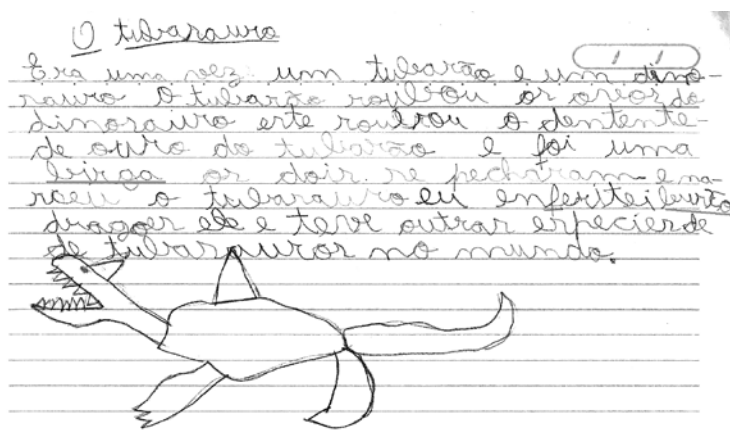 O tubarsauro
/ /
Era uma vez um tubarão e um dino-
sauro O tubarão roubou os ovos do
dinosauro este roubou o dentente-
de ouro do tubarão e foi uma
birga os dois se pecharam e na-
sceu o tubarsauro eu enfeitei
dragoes ele e teve outras especies de
de tubarsauros no mundo.